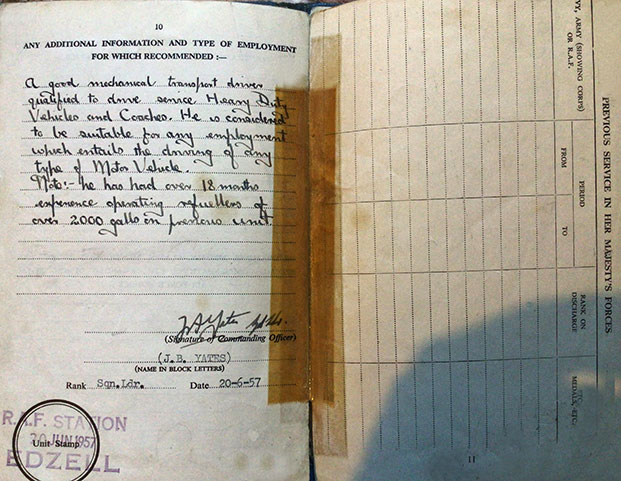 10
ANY ADDITIONAL INFORMATION AND TYPE OF EMPLOYMENT
FOR WHICH RECOMMENDED :—
A good mechanical transport driver
qualified to drive service Heavy Duty
Vehicles and Coaches. He is considered
to be suitable for any employment
which entails the driving of any
type of Motor Vehicle.
Note:- he has had over 18 months
experience operating refuellers of
over 2000 galls on previous unit.
(Signature of Commanding Officer)
(J.B. YATES)
(NAME IN BLOCK LETTERS)
Rank Sqn.Ldr. Date 20-6-57
R.A.F. STATION
20 JUN 1957
Unit Stamp
EDZELL
PREVIOUS SERVICE IN HER MAJESTY'S FORCES
VY, ARMY (SHOWING CORPS)
OR R.A.F.
PERIOD
FROM
TO
RANK ON
DISCHARGE
MEDALS, ETC.
11